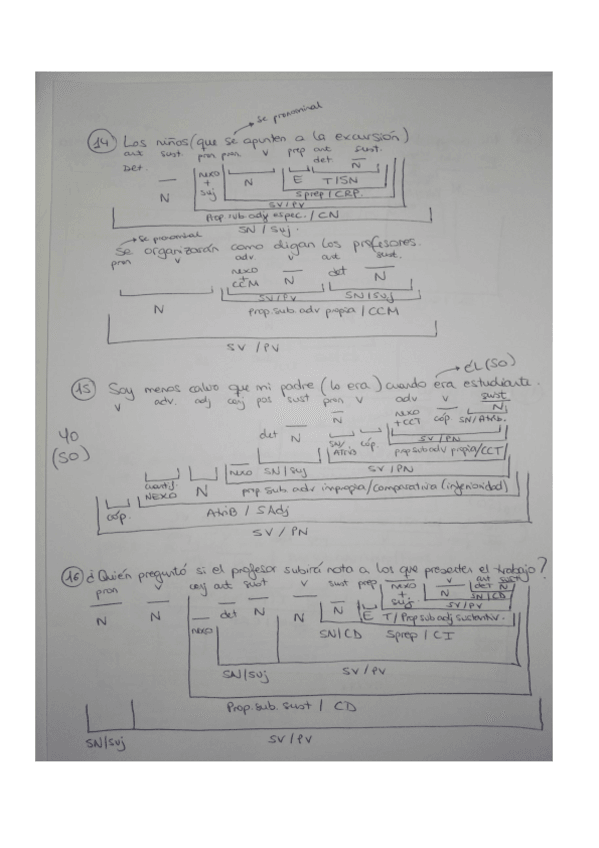 se pronominal
14 Los niños (que se apunten a la excursión)
art sust. pron pron. v prep art sust.
Det. det N
N nexo + suj N E T/SN
Sprep/CRP.
SV/PV
Prop. sub. adj espec. / CN
SN / Suj.
se pronominal
Se organizarán como digan los profesores.
pron v adv. v art sust.
nexo + CCM N det N
SV/PV SN/Suj
N Prop. sub. adv propia / CCM
SV / PV
ÉL (SO)
15 Soy menos calvo que mi padre (lo era) cuando era estudiante.
v adv. adj conj pos sust pron v adv v sust
YO (SO)
det N N nexo + CCT cóp N
SN/Atrib.
SN/Atrib cóp. SV/PN
prop sub adv propia/CCT
nexo SN/Suj SV/PN
cuantif. NEXO N prop. sub. adv impropia/comparativa (inferioridad)
cóp. Atrib / SAdj
SV / PN
16 ¿Quién preguntó si el profesor subirá nota a los que presenten el trabajo?
pron v conj art sust v sust prep. v art sust
N N nexo det N N N nexo + suj N det N
SN/CD
SV/PV
E T/Prop sub adj sustantiv.
SN/CD Sprep / CI
SN/Suj SV/PV
Prop. sub. sust / CD
SN/Suj SV/PV